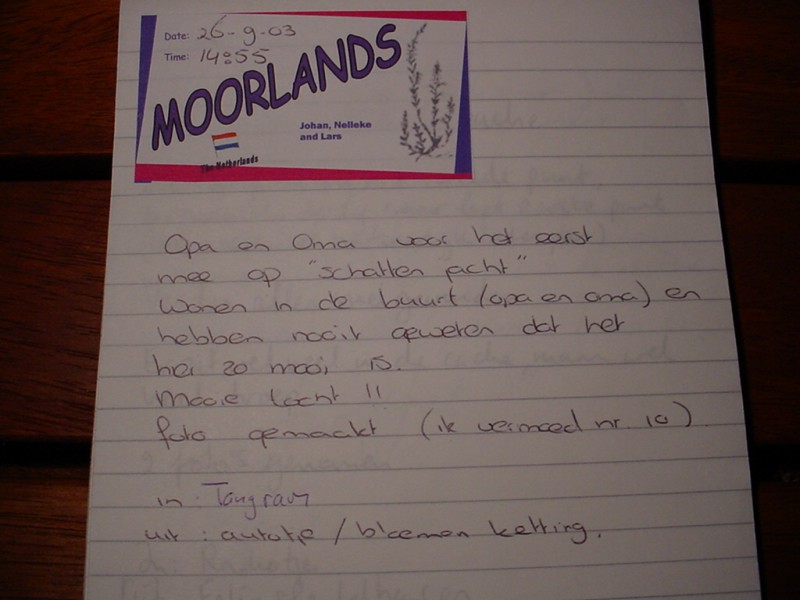 Date: 26-9-03
Time: 14:55
MOORLANDS
Johan, Nelleke
and Lars
The Netherlands
Opa en Oma voor het eerst
mee op "schatten jacht"
wonen in de buurt (opa en oma) en
hebben nooit geweten dat het
hier zo mooi is.
Mooie tocht !!
foto gemaakt (ik vermoed nr. 10)
in : Tangram
uit : autotje / bloemen ketting.